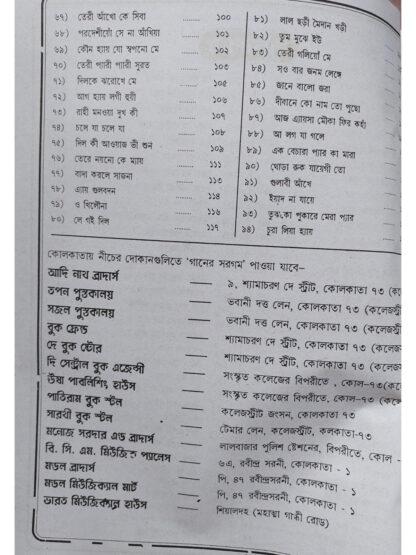 ৬৭) তেরী আঁখো কে সিবা ........ ১০০
৬৮) পরদেশীয়ো সে না আঁখিয়া ........ ১০১
৬৯) কৌন হ্যায় যো স্বপনো মে ........ ১০২
৭০) তেরী প্যারী প্যারী সুরত ........ ১০৩
৭১) দিলকে ঝরোখে মে ........ ১০৫
৭২) আগ হ্যায় লগী হুয়ী ........ ১০৬
৭৩) রাহী মনওয়া দুখ কী ........ ১০৭
৭৪) চলে যা চলে যা ........ ১০৮
৭৫) দিল কী আওয়াজ ভী শুন ........ ১০৯
৭৬) তেরে নয়নো কে ম্যায় ........ ১১১
৭৭) বাদা করলে সাজনা ........ ১১৩
৭৮) এ্যায় গুলবদন ........ ১১৪
৭৯) ও খিলৌনা ........ ১১৬
৮০) লে গই দিল ........ ১১৭
৮১) লাল ছড়ী মৈদান খড়ী
৮২) তুম মুঝে ইউ
৮৩) তেরী গলিয়োঁ মে
৮৪) সও বার জনম লেঙ্গে
৮৫) জানে বালো জরা
৮৬) দীবানে কো নাম তো পুছো
৮৭) আজ এ্যায়সা মৌকা ফির কহাঁ
৮৮) আ লগ যা গলে
৮৯) এক বেচারা প্যার কা মারা
৯০) থোড়া রুক যায়েগী তো
৯১) গুলাবী আঁখে
৯২) ইয়াদ না যায়ে
৯৩) তুঝকো পুকারে মেরা প্যার
৯৪) চুরা লিয়া হ্যায়
কোলকাতায় নীচের দোকানগুলিতে 'গানের সরগম' পাওয়া যাবে–
আদি নাথ ব্রাদার্স — ৯, শ্যামাচরণ দে স্ট্রীট, কোলকাতা ৭৩
তপন পুস্তকালয় — ভবানী দত্ত লেন, কোলকাতা ৭৩
সজল পুস্তকালয় — ভবানী দত্ত লেন, কোলকাতা ৭৩
বুক ফ্রেন্ড — শ্যামাচরণ দে স্ট্রীট, কোলকাতা ৭৩
দে বুক ষ্টোর — শ্যামাচরণ দে স্ট্রীট, কোলকাতা ৭৩
দি সেন্ট্রাল বুক এজেন্সী — সংস্কৃত কলেজের বিপরীতে, কোল-৭৩
উষা পাবলিশিং হাউস — সংস্কৃত কলেজের বিপরীতে, কোলকাতা ৭৩
পাতিরাম বুক স্টল — কলেজস্ট্রীট জংসন, কোলকাতা ৭৩
সারথী বুক স্টল — টেমার লেন, কলেজস্ট্রীট, কলকাতা-৭৩
মনোজ সরদার এন্ড ব্রাদার্স — লালবাজার পুলিশ ষ্টেশনের, বিপরীতে, কোল -
বি. সি. এম. মিউজিক প্যালেস — ৬এ, রবীন্দ্র সরনী, কোলকাতা - ১
মন্ডল ব্রাদার্স — পি, ৪৭ রবীন্দ্রসরনী, কোলকাতা - ১
মন্ডল মিউজিক্যিল মার্ট — পি, ৪৭ রবীন্দ্র সরনী, কোলকাতা - ১
ভারত মিউজিক্যাল হাউস — শিয়ালদহ (মহাত্মা গান্ধী রোড)